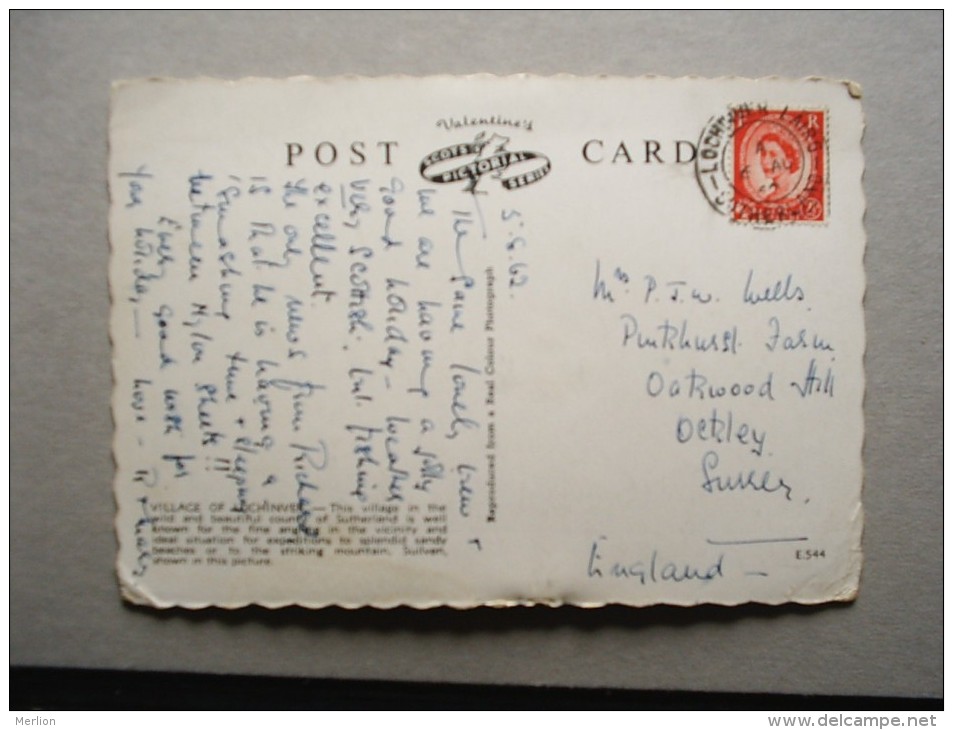 POST CARD
Valentine's
SCOTS
PICTORIAL
SERIES
LOCHINVER LAIRG
SUTHERLAND
5.8.62.
The same lovely view &
we are having a jolly
good holiday - weather
very Scottish, but fishing
excellent.
The only news from Richard
is that he is having a
'Smashing' time & sleeping
between Nylon sheets!!
Every good wish for
your holiday, — love -
Reproduced from a Real Colour Photograph
Mrs P.J.W. Wells
Pinkhurst Farm
Oakwood Hill
Ockley
Surrey.
England -
VILLAGE OF LOCHINVER — This village in the
wild and beautiful county of Sutherland is well
known for the fine angling in the vicinity and
ideal situation for expeditions to splendid sandy
beaches or to the striking mountain, Suilven,
shown in this picture.
E.544
Merlion
www.delcampe.net